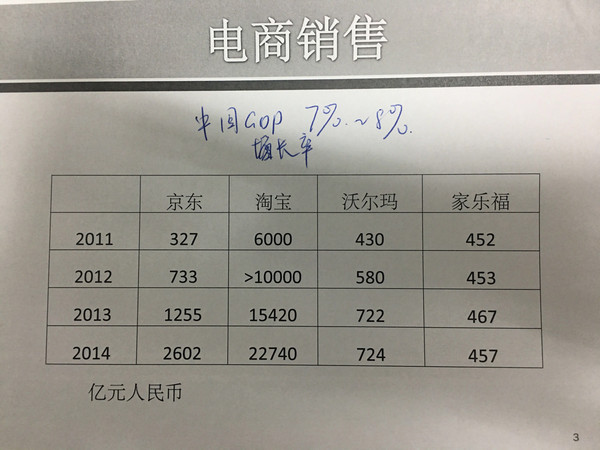 电商销售
中国GDP 7%~8%
增长率
京东 淘宝 沃尔玛 家乐福
2011 327 6000 430 452
2012 733 >10000 580 453
2013 1255 15420 722 467
2014 2602 22740 724 457
亿元人民币
3